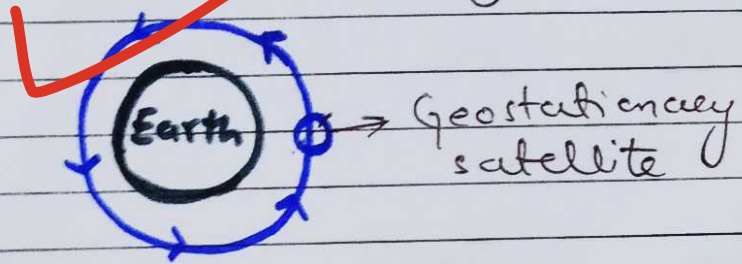 Earth
Geostationary
satellite